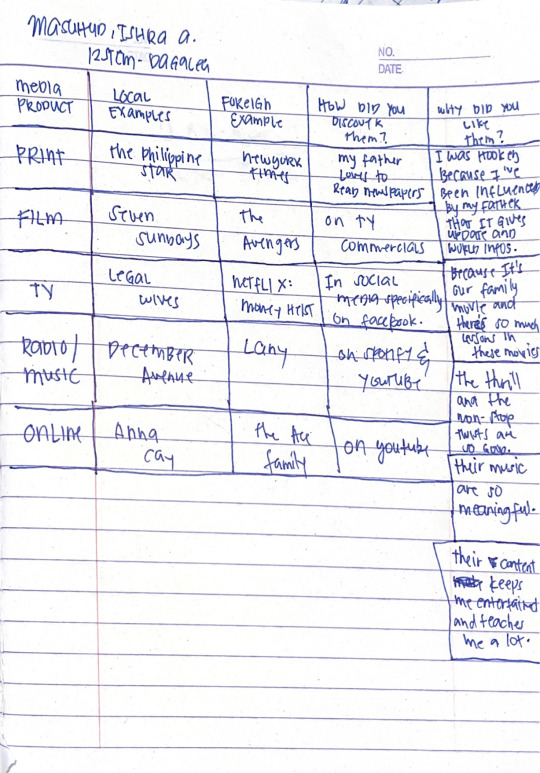 MASUHUD, ISHRA A.
12STEM - DAGALEA
NO.
DATE
MEDIA PRODUCT
LOCAL EXAMPLES
FOREIGN EXAMPLE
HOW DID YOU DISCOVER THEM?
WHY DID YOU LIKE THEM?
PRINT
the Philippine STAR
newyork times
my father loves to Read newspapers
I was Hooked
Because I've
Been Influenced
by my father
that IT Gives
update and
world infos.
FILM
Seven Sundays
the Avengers
on TV commercials
Because It's
our family
movie and
there's so much
lessons In
these movies
TV
LEGAL wives
NETFLIX: money HEIST
In social media specifically on facebook.
the thrill
and the
non-stop
twists are
so good.
RADIO/ MUSIC
DECEMBER Avenue
Lany
on spotify & youtube
their music
are so
meaningful.
ONLINE
Anna Cay
the Ace family
on youtube
their content
keeps
me entertained
and teaches
me a lot.